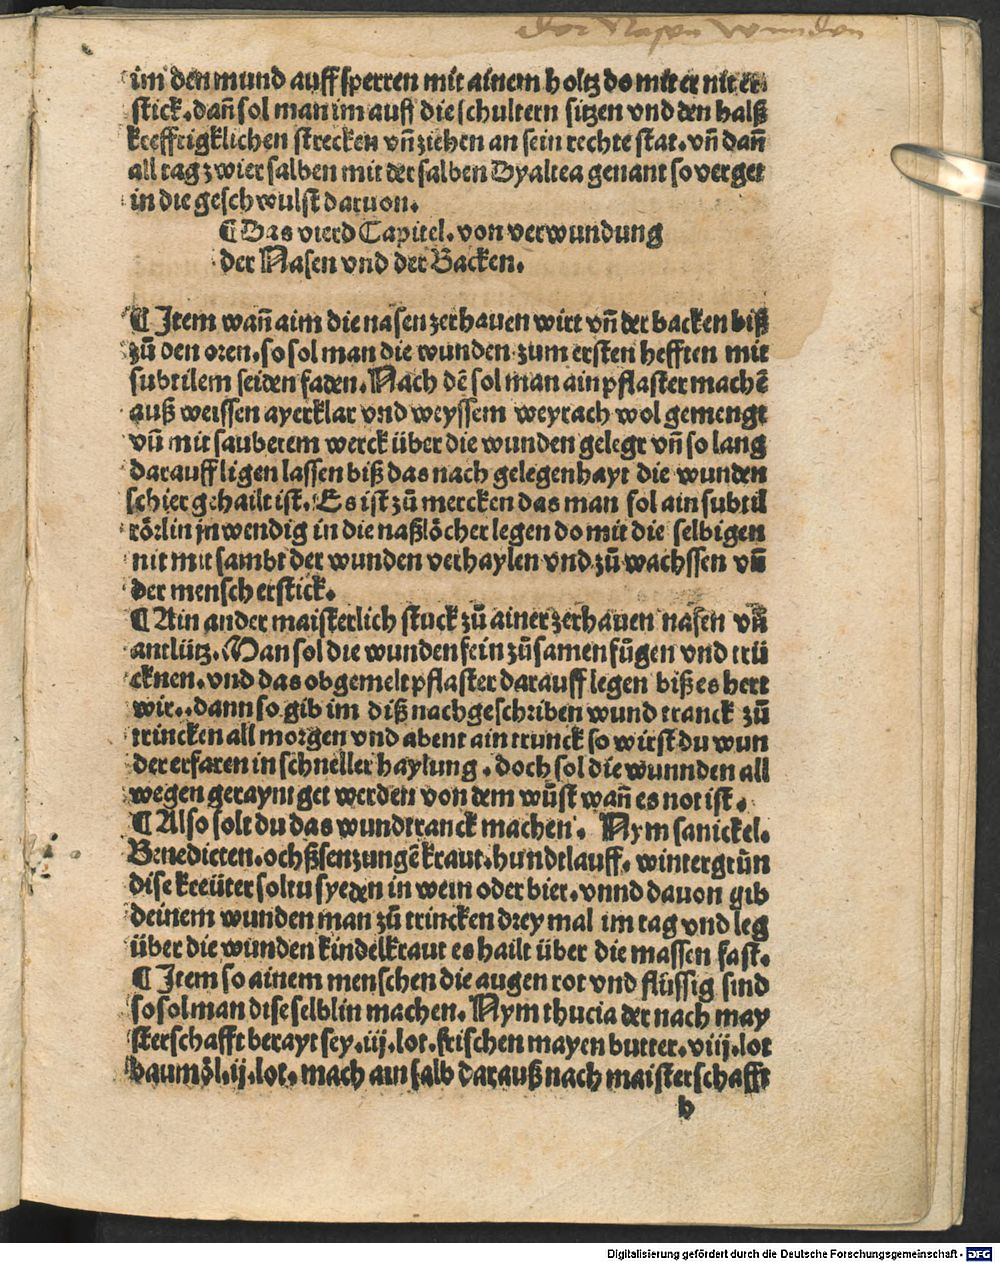 der Nasen wunden
im den mund auff sperren mit ainem holtz do mit er nit er
stick. dañ sol man im auff die schultern sitzen vnd den halß
kreffrigklichen strecken vñ ziehen an sein rechte stat. vñ dañ
all tag zwier salben mit der salben Dyaltea genant so verget
in die geschwulst daruon.
¶ Das vierd Capitel. von verwundung
der Nasen vnd der Backen.
¶ Item wañ aim die nasen zerhauen wirt vñ der backen biß
zů den oren. so sol man die wunden zum ersten hefften mit
subtilem seiden faden. Nach dē sol man ain pflaster machē
auß weissen ayerklar vnd weyssem weyrach wol gemengt
vñ mit sauberem werck über die wunden gelegt vñ so lang
darauff ligen lassen biß das nach gelegenhayt die wunden
schier gehailt ist. Es ist zů mercken das man sol ain subtil
rörlin jnwendig in die naßlöcher legen do mit die selbigen
nit mit sambt der wunden verhaylen vnd zů wachssen vñ
der mensch erstick.
¶ Ain ander maisterlich stuck zů ainer zerhauen nasen vñ
antlütz. Man sol die wunden fein zůsamen fůgen vnd trü
cknen. vnd das obgemelt pflaster darauff legen biß es hert
wir. dann so gib im diß nachgeschriben wund tranck zů
trincken all morgen vnd abent ain trunck so wirst du wun
der erfaren in schneller haylung. doch sol die wunnden all
wegen gerayniget werden von dem wůst wañ es not ist.
¶ Also solt du das wundtranck machen. Nym sanickel.
Benedicten. ochßsenzungē kraut. hundtlauff. wintergrün
dise kreüter soltu syeden in wein oder bier. vnnd dauon gib
deinem wunden man zů trincken drey mal im tag vnd leg
über die wunden kindelkraut es hailt über die massen fast.
¶ Item so ainem menschen die augen rot vnd flüssig sind
so sol man dise selblin machen. Nym thucia der nach may
sterschafft berayt sey. iij. lot. frischen mayen butter. viij. lot
baumöl. ij. lot. mach ain salb darauß nach maisterschafft
b
Digitalisierung gefördert durch die Deutsche Forschungsgemeinschaft - DFG